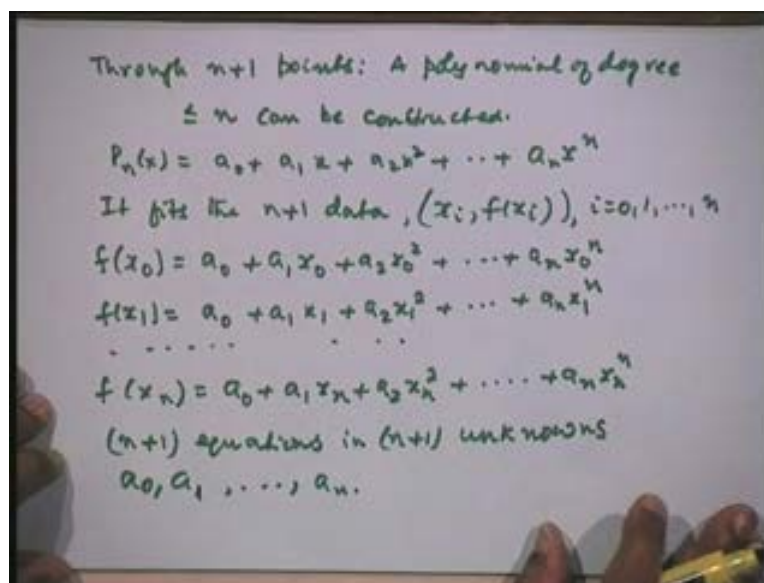 Through n+1 points: A polynomial of degree
≤ n can be constructed.
Pₙ(x) = a₀ + a₁x + a₂x² + ·· + aₙxⁿ
It fits the n+1 data, (xᵢ, f(xᵢ)), i=0,1,..., n
f(x₀) = a₀ + a₁x₀ + a₂x₀² + ···· + aₙx₀ⁿ
f(x₁) = a₀ + a₁x₁ + a₂x₁² + ··· + aₙx₁ⁿ
· · · · · · · ·
f(xₙ) = a₀ + a₁xₙ + a₂xₙ² + ···· + aₙxₙⁿ
(n+1) equations in (n+1) unknowns
a₀, a₁, ...., aₙ.